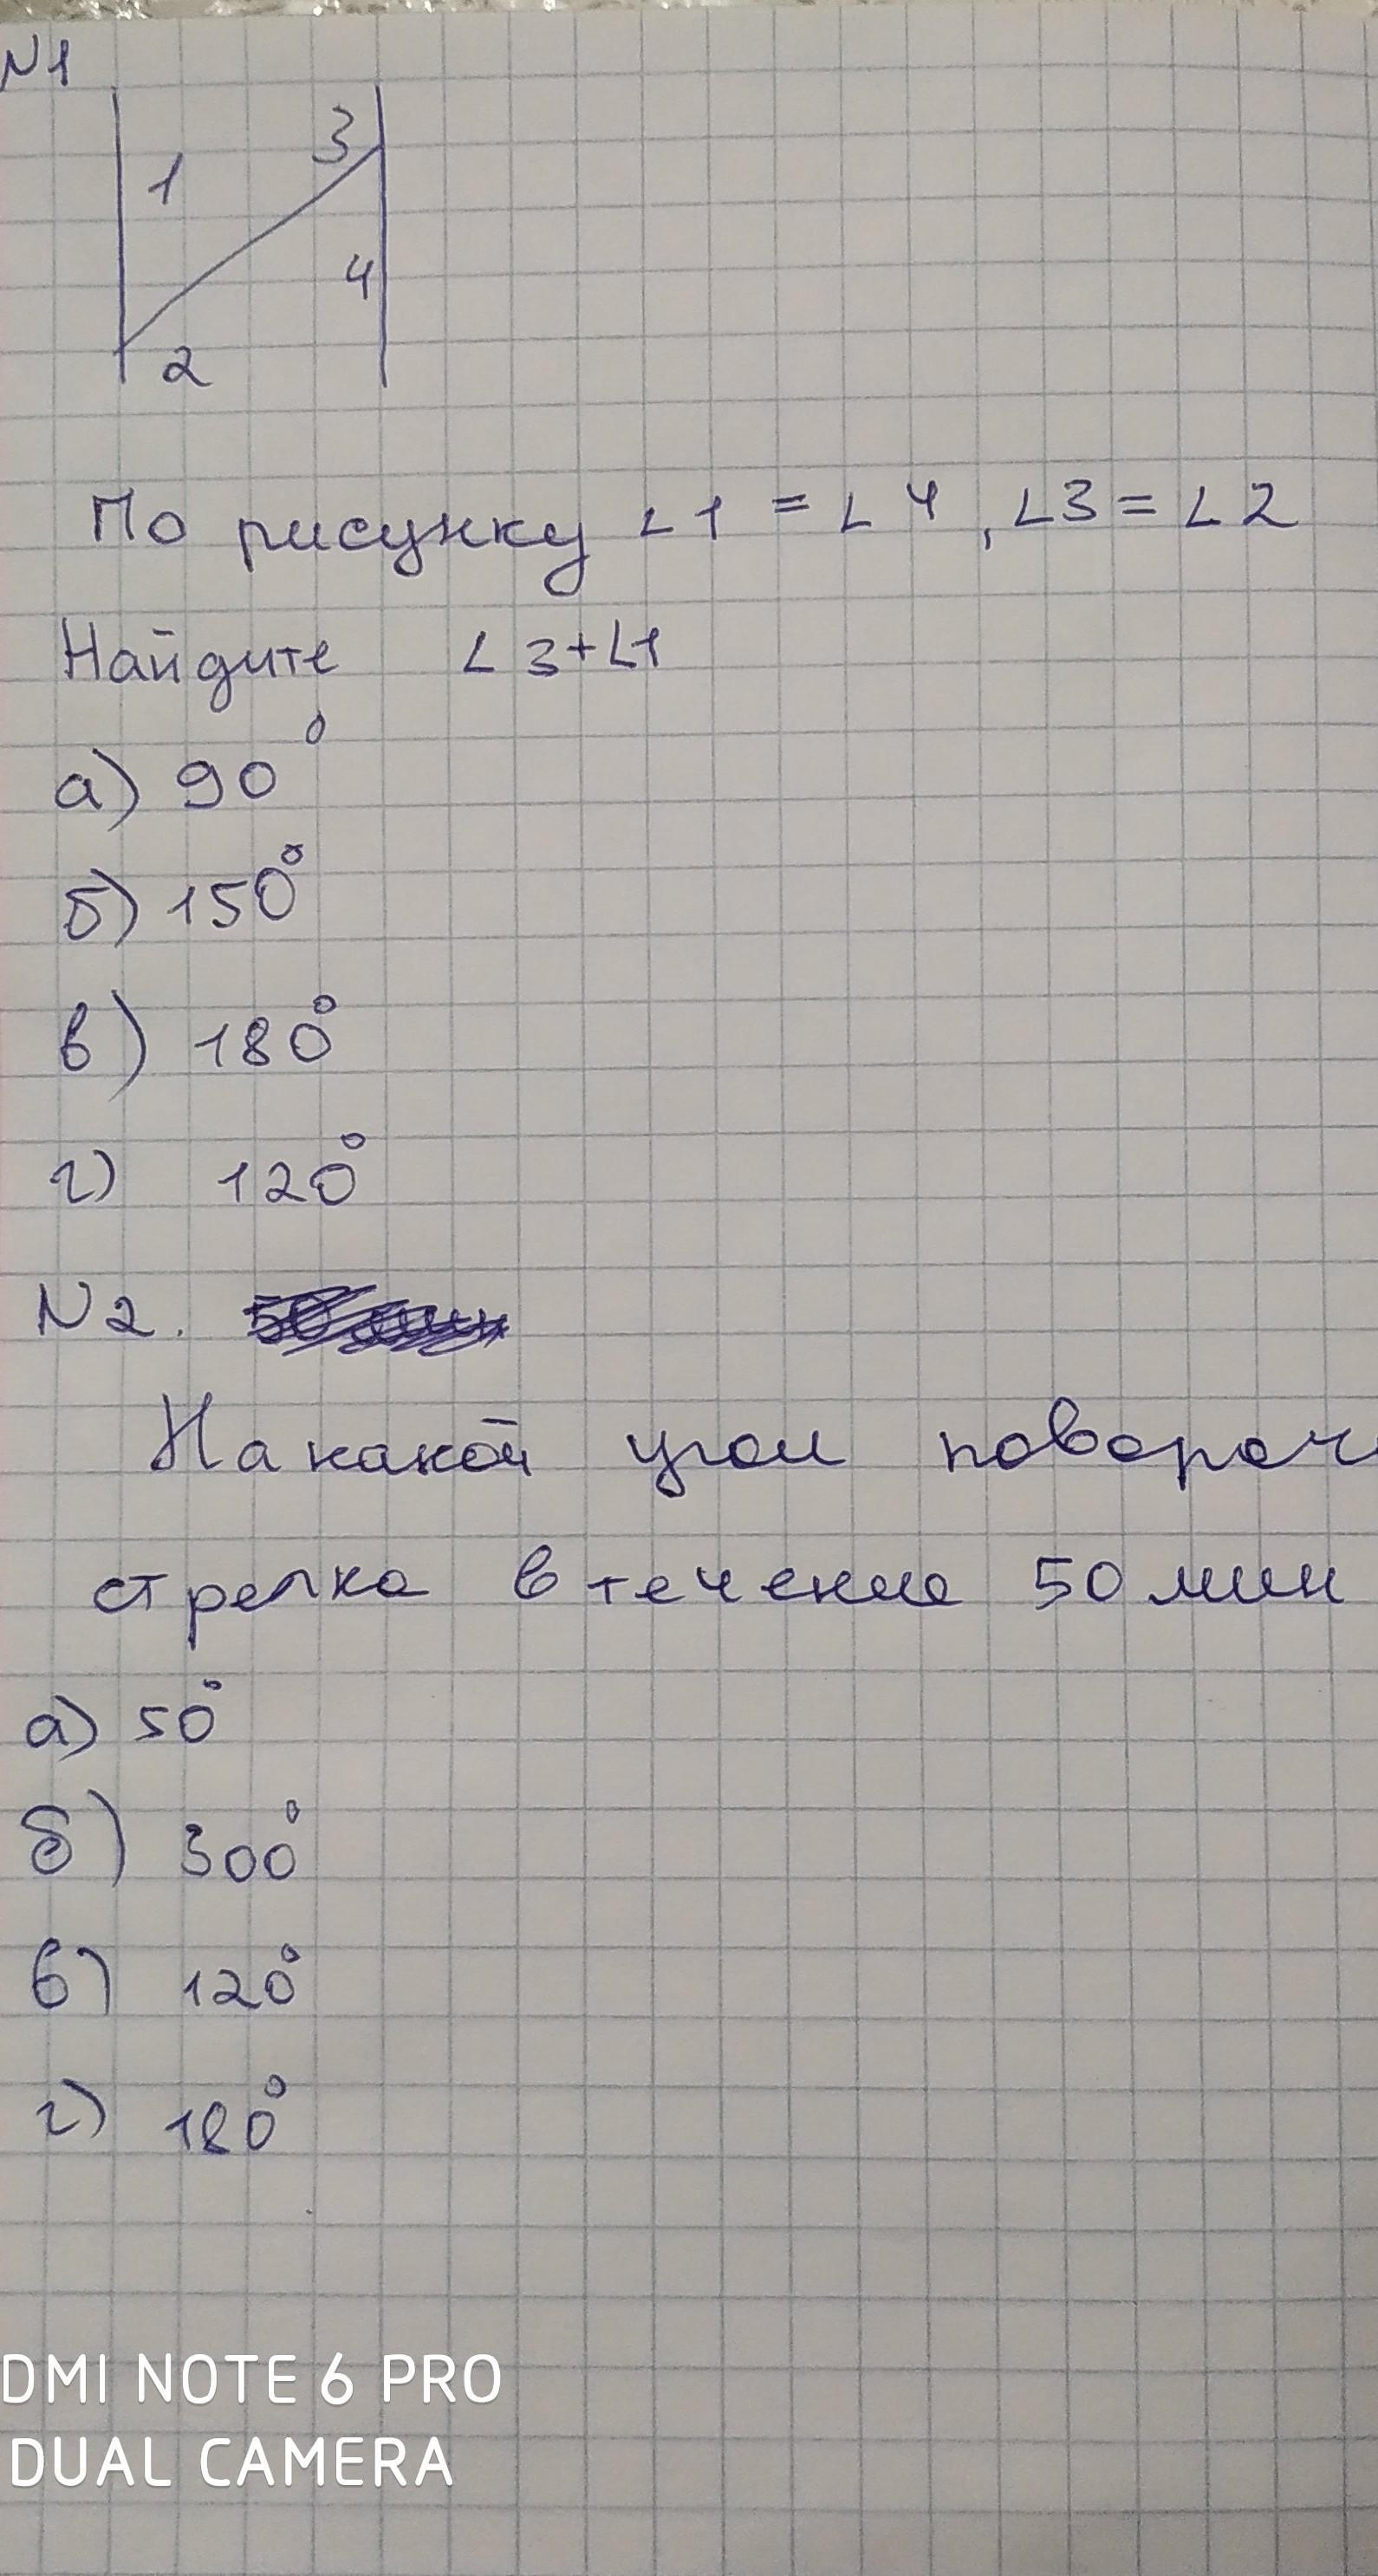 N1
1
3
4
2
По рисунку ∠1 = ∠4, ∠3 = ∠2
Найдите ∠3+∠1
а) 90°
б) 150°
в) 180°
г) 120°
N2.
На какой угол повороч
стрелка в течение 50 мин
а) 50°
б) 300°
в) 120°
г) 180°
DMI NOTE 6 PRO
DUAL CAMERA